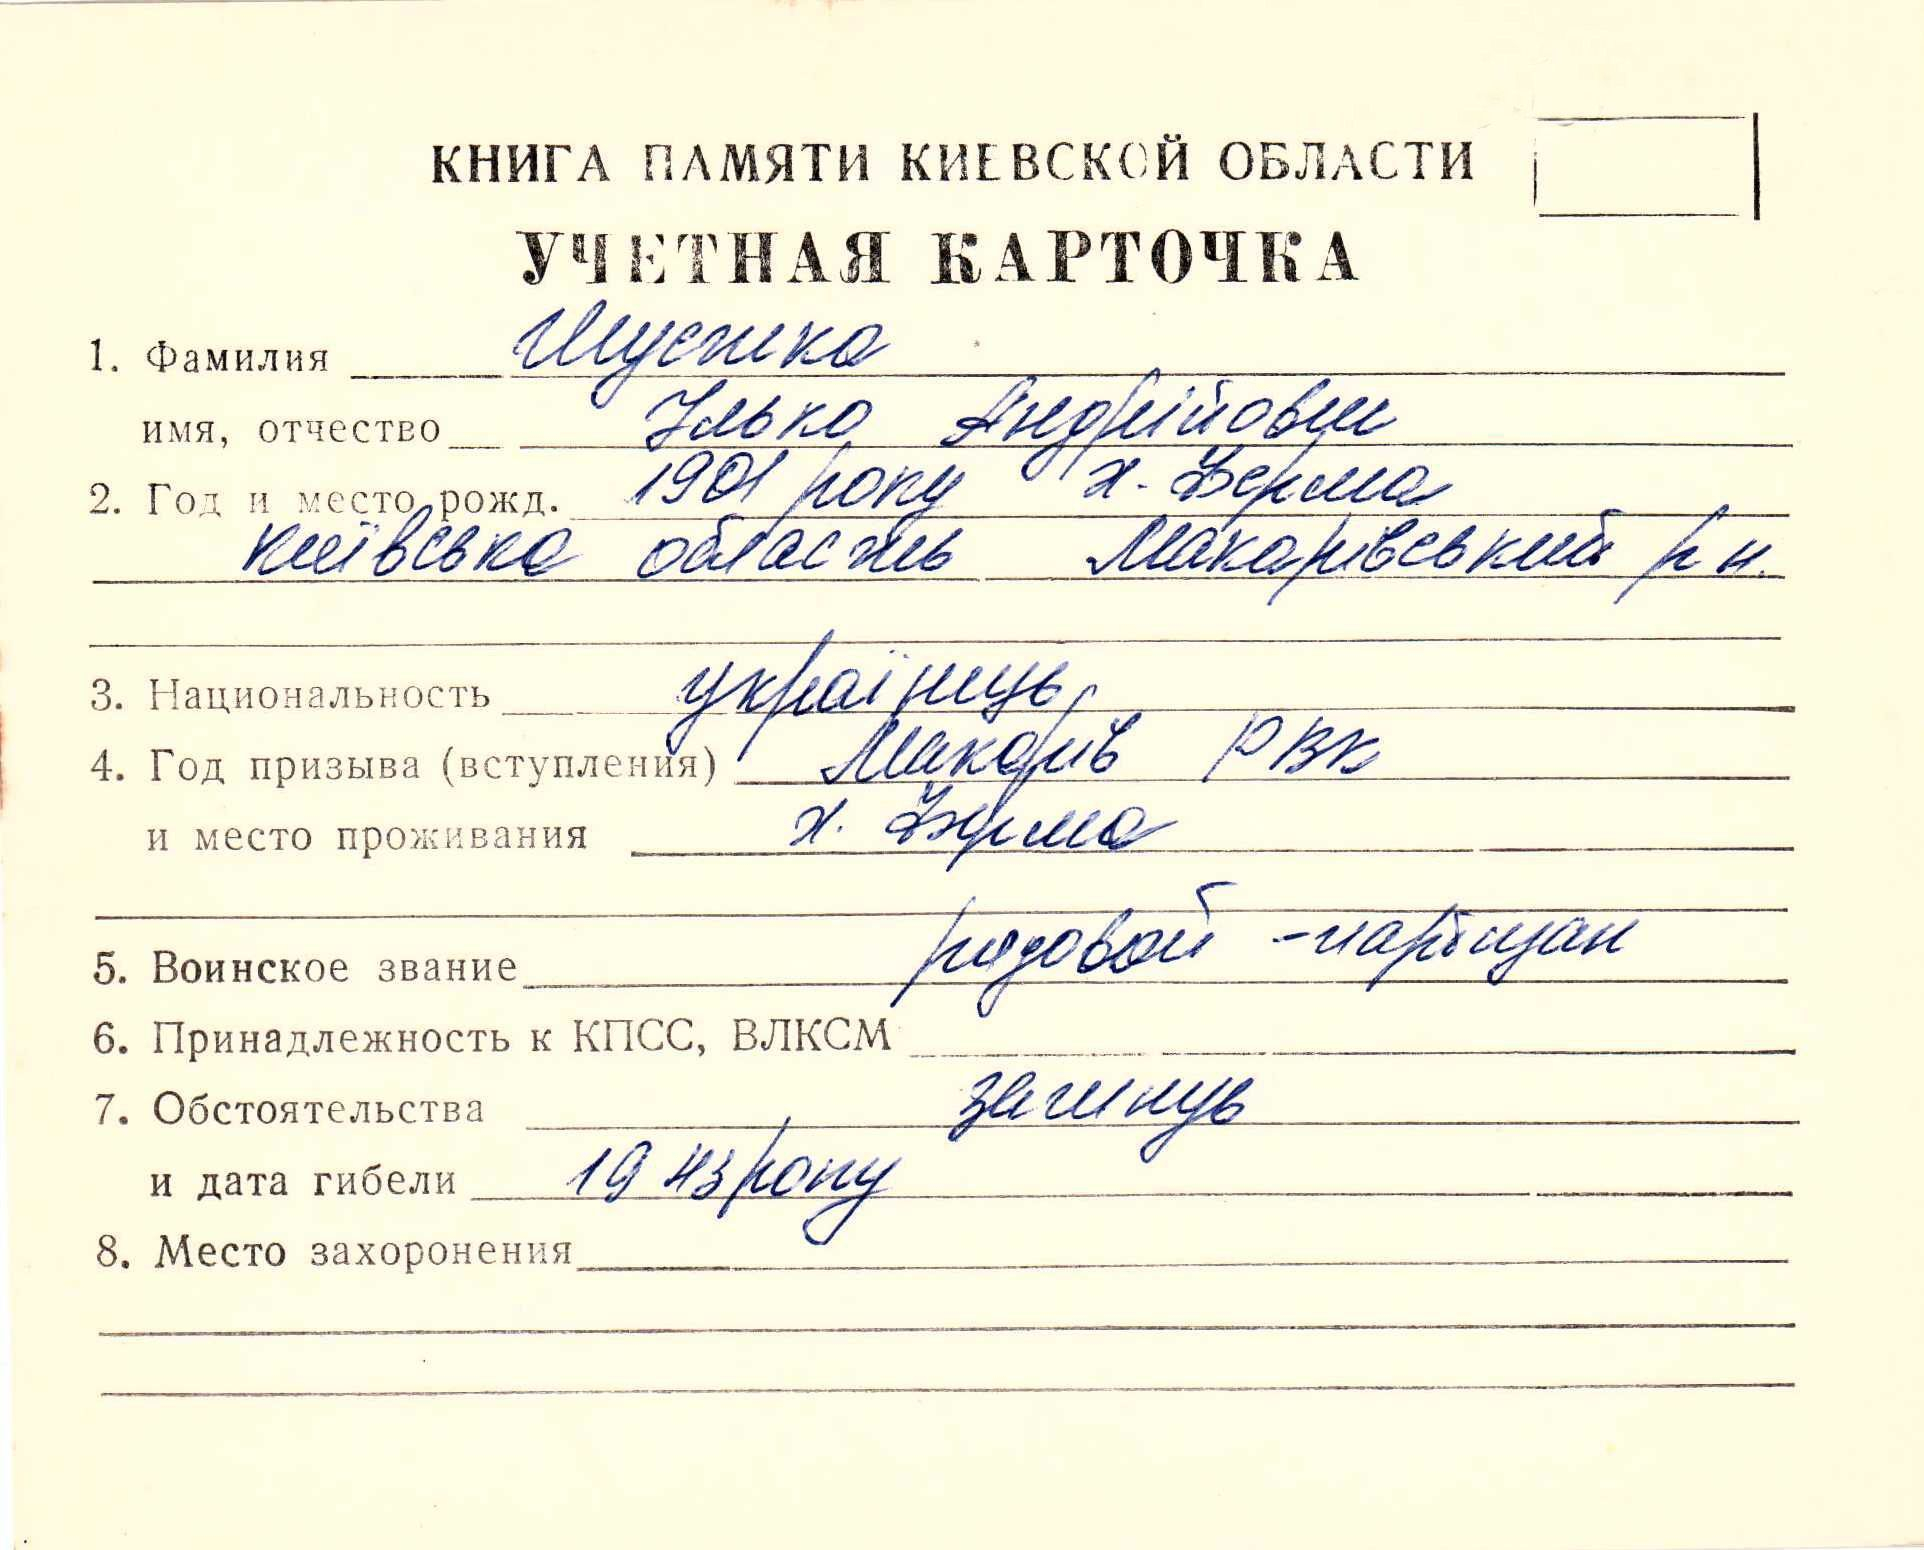 КНИГА ПАМЯТИ КИЕВСКОЙ ОБЛАСТИ
УЧЕТНАЯ КАРТОЧКА
1. Фамилия Шустка
имя, отчество Ілько Андрійович
2. Год и место рожд. 1901 року х. Ферма
Київська область Макарівський р н.
3. Национальность українець
4. Год призыва (вступления) Макарів РВК
и место проживания х. Ферма
5. Воинское звание рядовой - партизан
6. Принадлежность к КПСС, ВЛКСМ
7. Обстоятельства загинув
и дата гибели 1943 року
8. Место захоронения